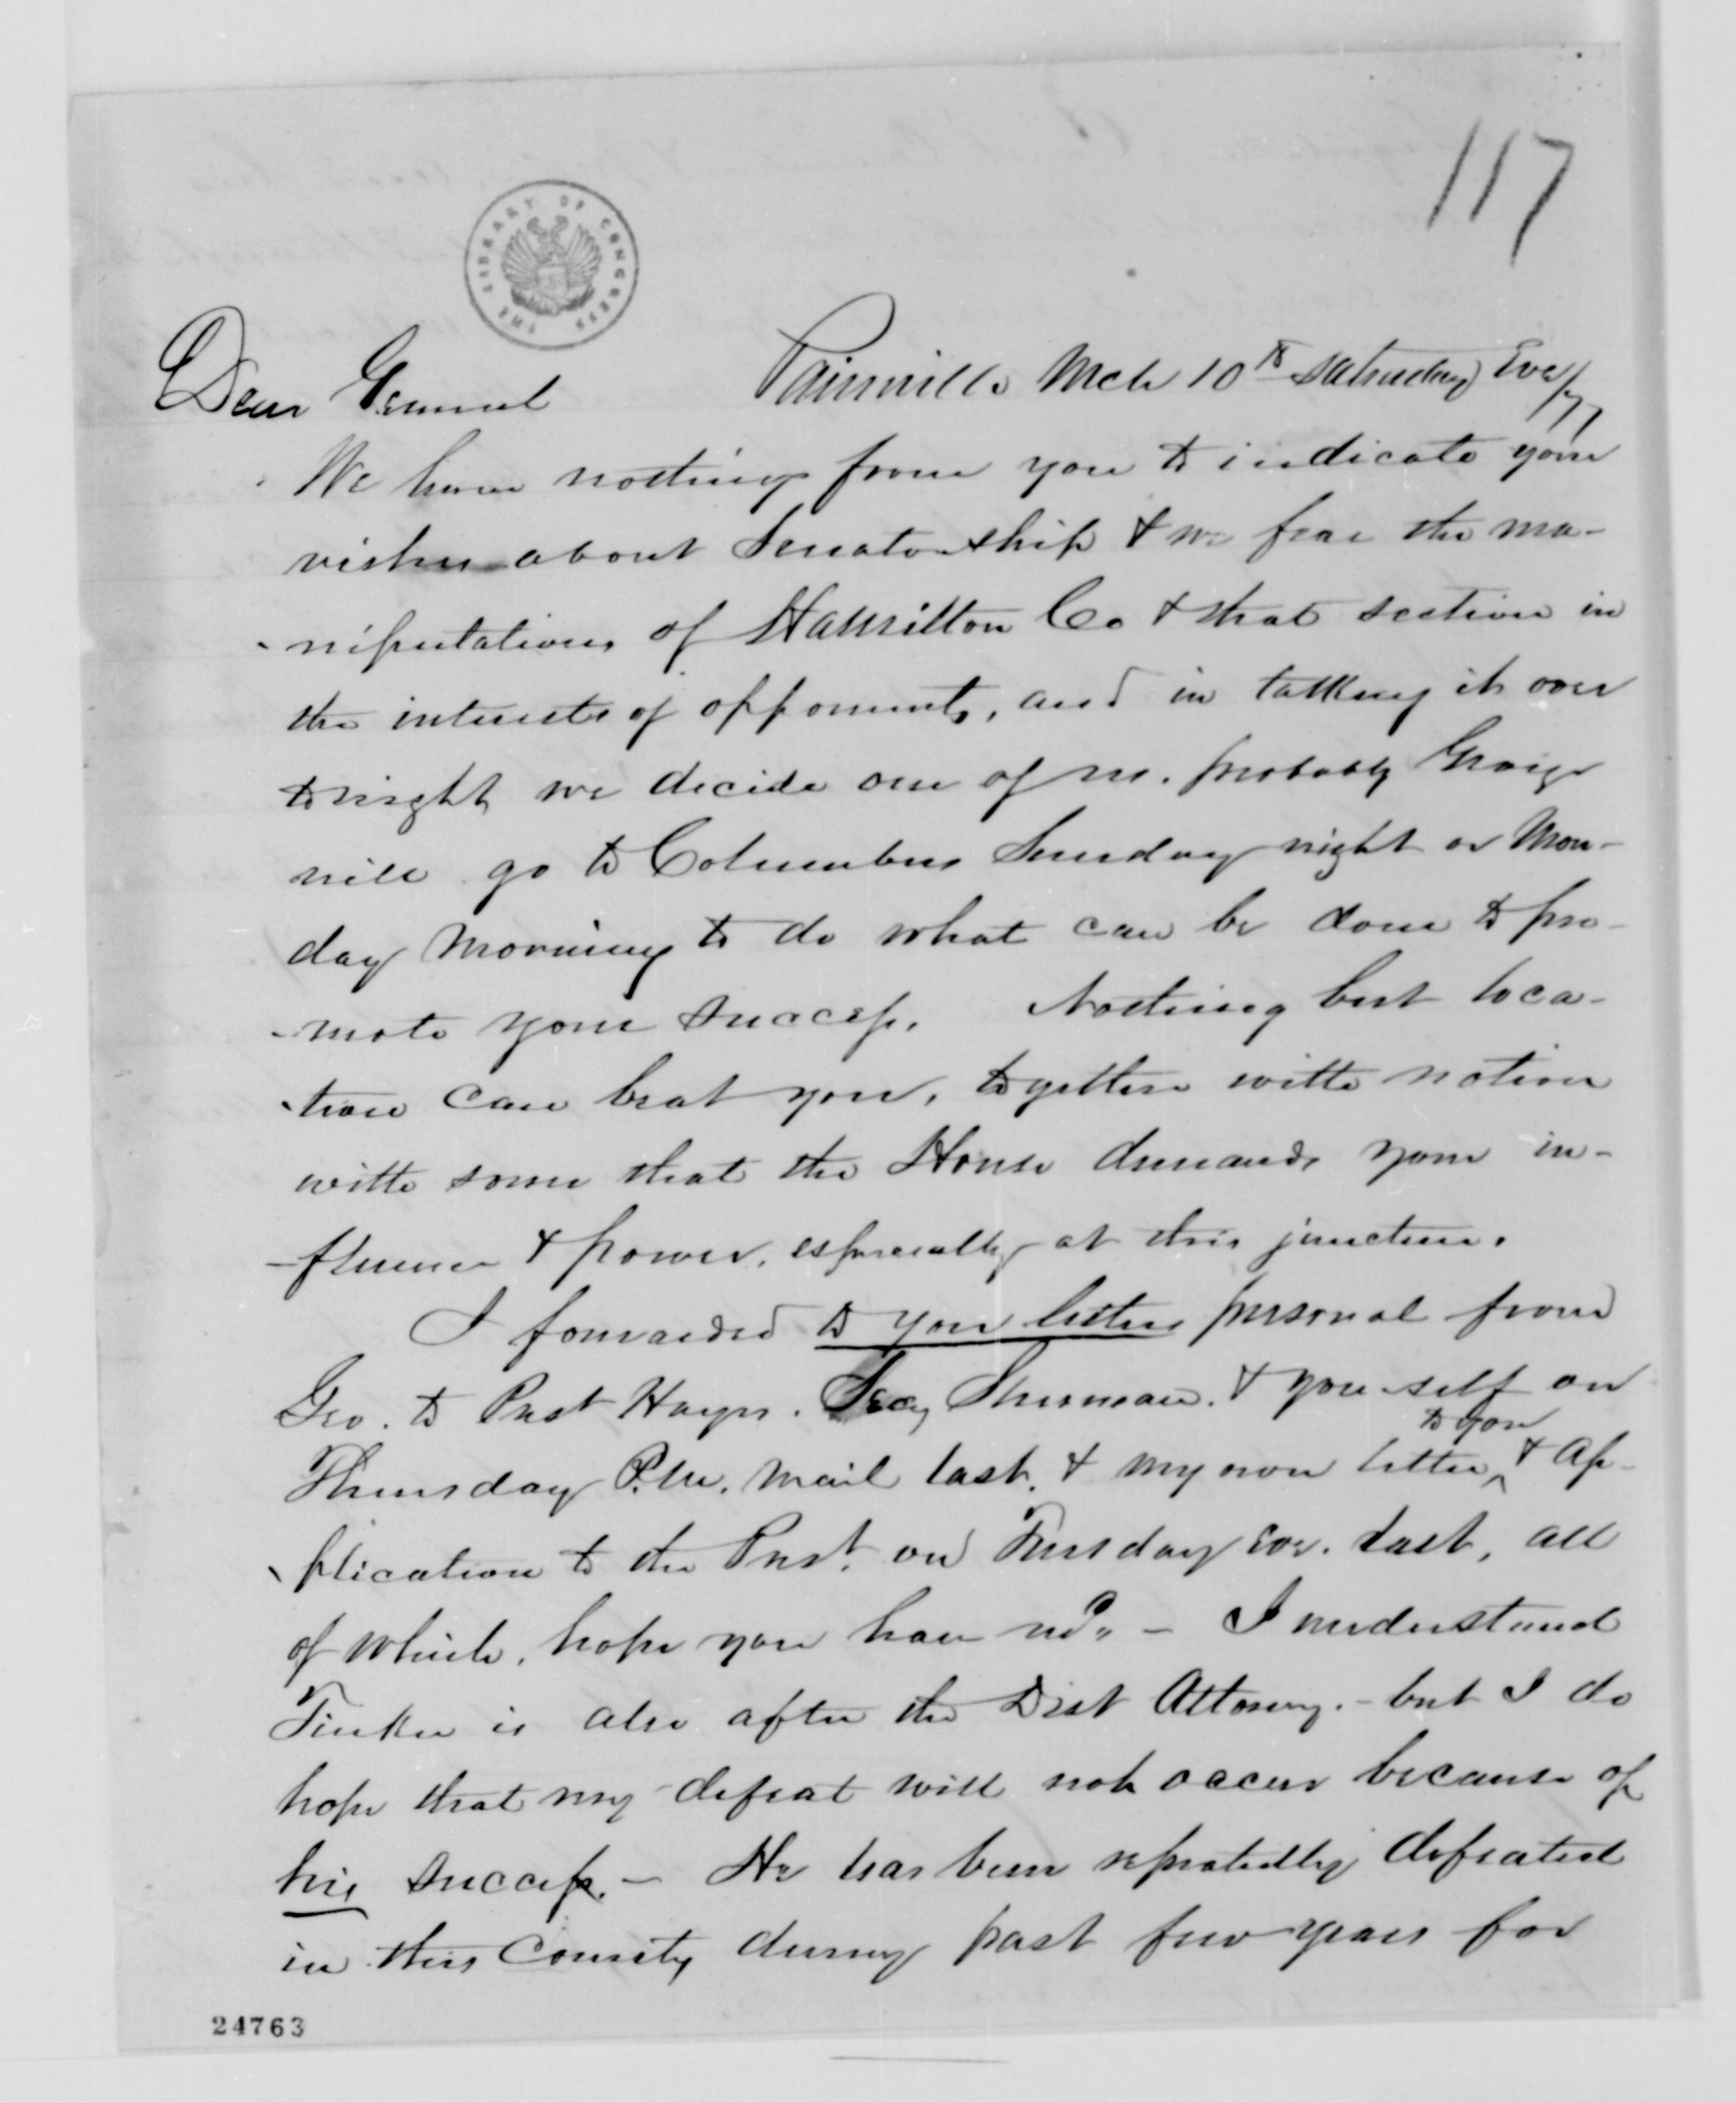 117
THE LIBRARY OF CONGRESS
Painesville Mch 10th Saturday Eve /77
Dear General
We have nothing from you to indicate your
wishes about Senatorship & we fear the ma-
-nipulations of Hamilton Co & that section in
the interests of opponents, and in talking it over
tonight we decide one of us. probably George
will go to Columbus Sunday night or Mon-
day Morning to do what can be done to pro-
-mote your success. Nothing but loca-
-tion can beat you, together with notion
with some that the House demands your in-
-fluence & power, especially at this juncture.
I forwarded to you letters personal from
Geo. to Prest Hayes. Secy Sherman. & yourself on
Thursday P.M. Mail last. & my own letter to you & Ap-
-plication to the Prest. on Tuesday eve. last, all
of which, hope you have recd. - I understand
Tinker is also after the Dist Attorney. - but I do
hope that my defeat will not occur because of
his success. - He has been repeatedly defeated
in this County during past few years for
24763